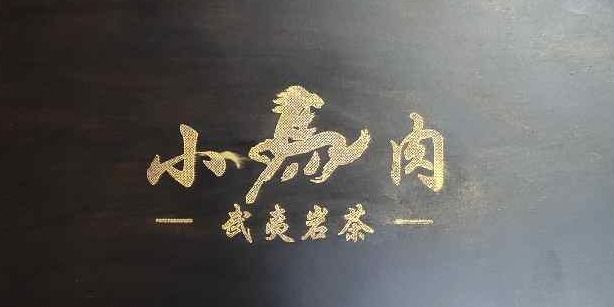 小馬肉
武夷岩茶